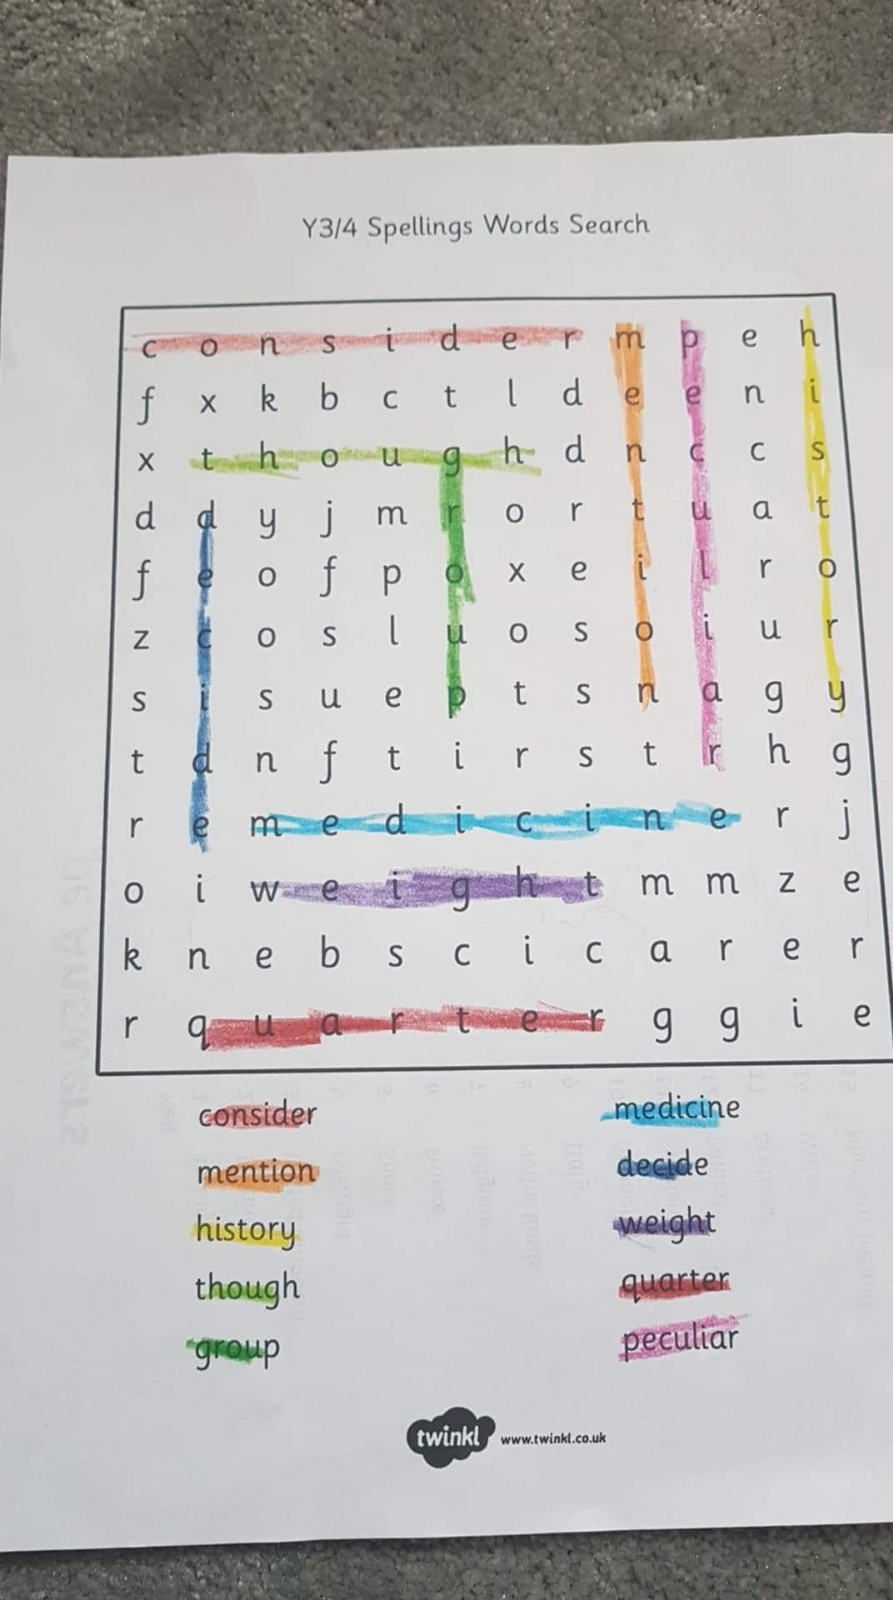 Y3/4 Spellings Words Search
c o n s i d e r m p e h
f x k b c t l d e e n i
x t h o u g h d n c c s
d d y j m r o r t u a t
f e o f p o x e i l r o
z c o s l u o s o i u r
s i s u e p t s n a g y
t d n f t i r s t r h g
r e m e d i c i n e r j
o i w e i g h t m m z e
k n e b s c i c a r e r
r q u a r t e r g g i e
consider
mention
history
though
group
medicine
decide
weight
quarter
peculiar
twinkl www.twinkl.co.uk